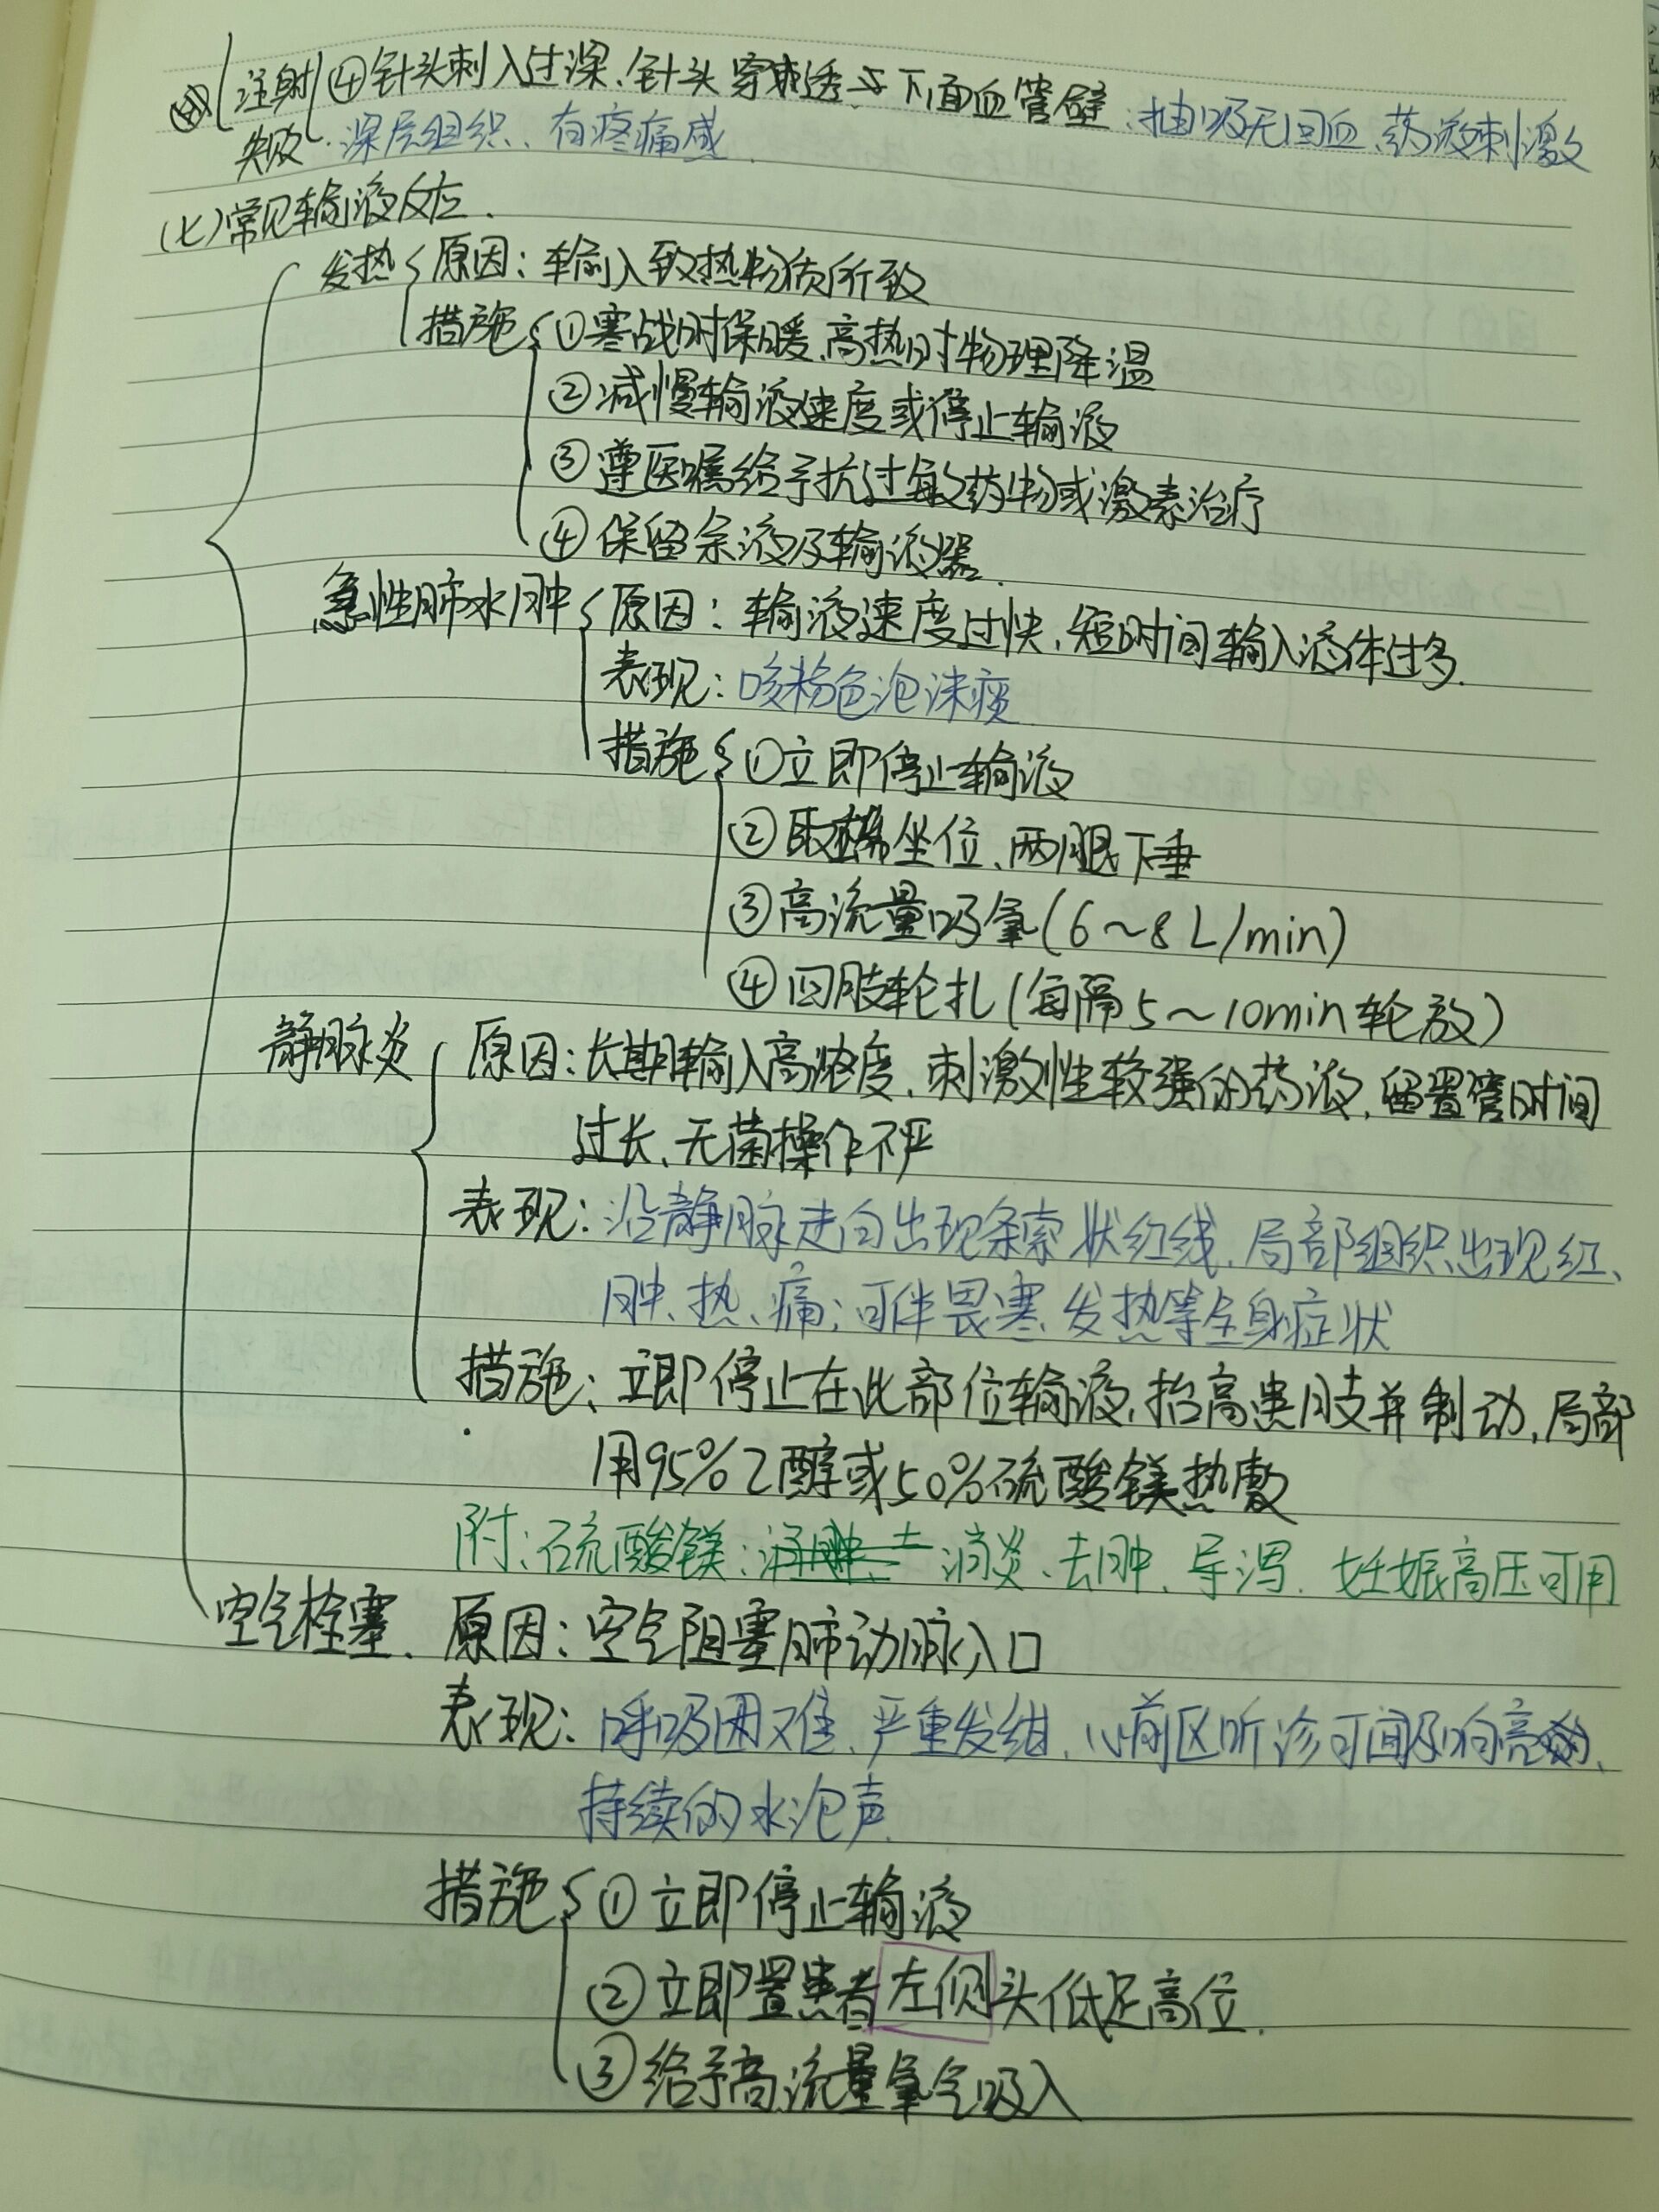 注射 ④针头刺入过深、针头穿透下面血管壁：抽吸无回血、药液刺激
失败 深层组织、有疼痛感
(七)常见输液反应.
发热 原因：输入致热物质所致
措施 ①寒战时保暖、高热时物理降温
②减慢输液速度或停止输液
③遵医嘱给予抗过敏药物或激素治疗
④保留余液及输液器.
急性肺水肿 原因：输液速度过快、短时间输入液体过多.
表现：咳粉色泡沫痰
措施 ①立即停止输液
②取端坐位、两腿下垂
③高流量吸氧(6~8L/min)
④四肢轮扎(每隔5~10min轮放)
静脉炎 原因：长期输入高浓度、刺激性较强的药液、留置管时间
过长、无菌操作不严
表现：沿静脉走向出现条索状红线、局部组织出现红、
肿、热、痛；可伴畏寒、发热等全身症状
措施：立即停止在此部位输液、抬高患肢并制动、局部
用95%乙醇或50%硫酸镁热敷
附：硫酸镁：消炎、去肿、导泻、妊娠高压可用
空气栓塞、原因：空气阻塞肺动脉入口
表现：呼吸困难、严重发绀、心前区听诊可闻及响亮、
持续的水泡声
措施 ①立即停止输液
②立即置患者左侧头低足高位.
③给予高流量氧气吸入